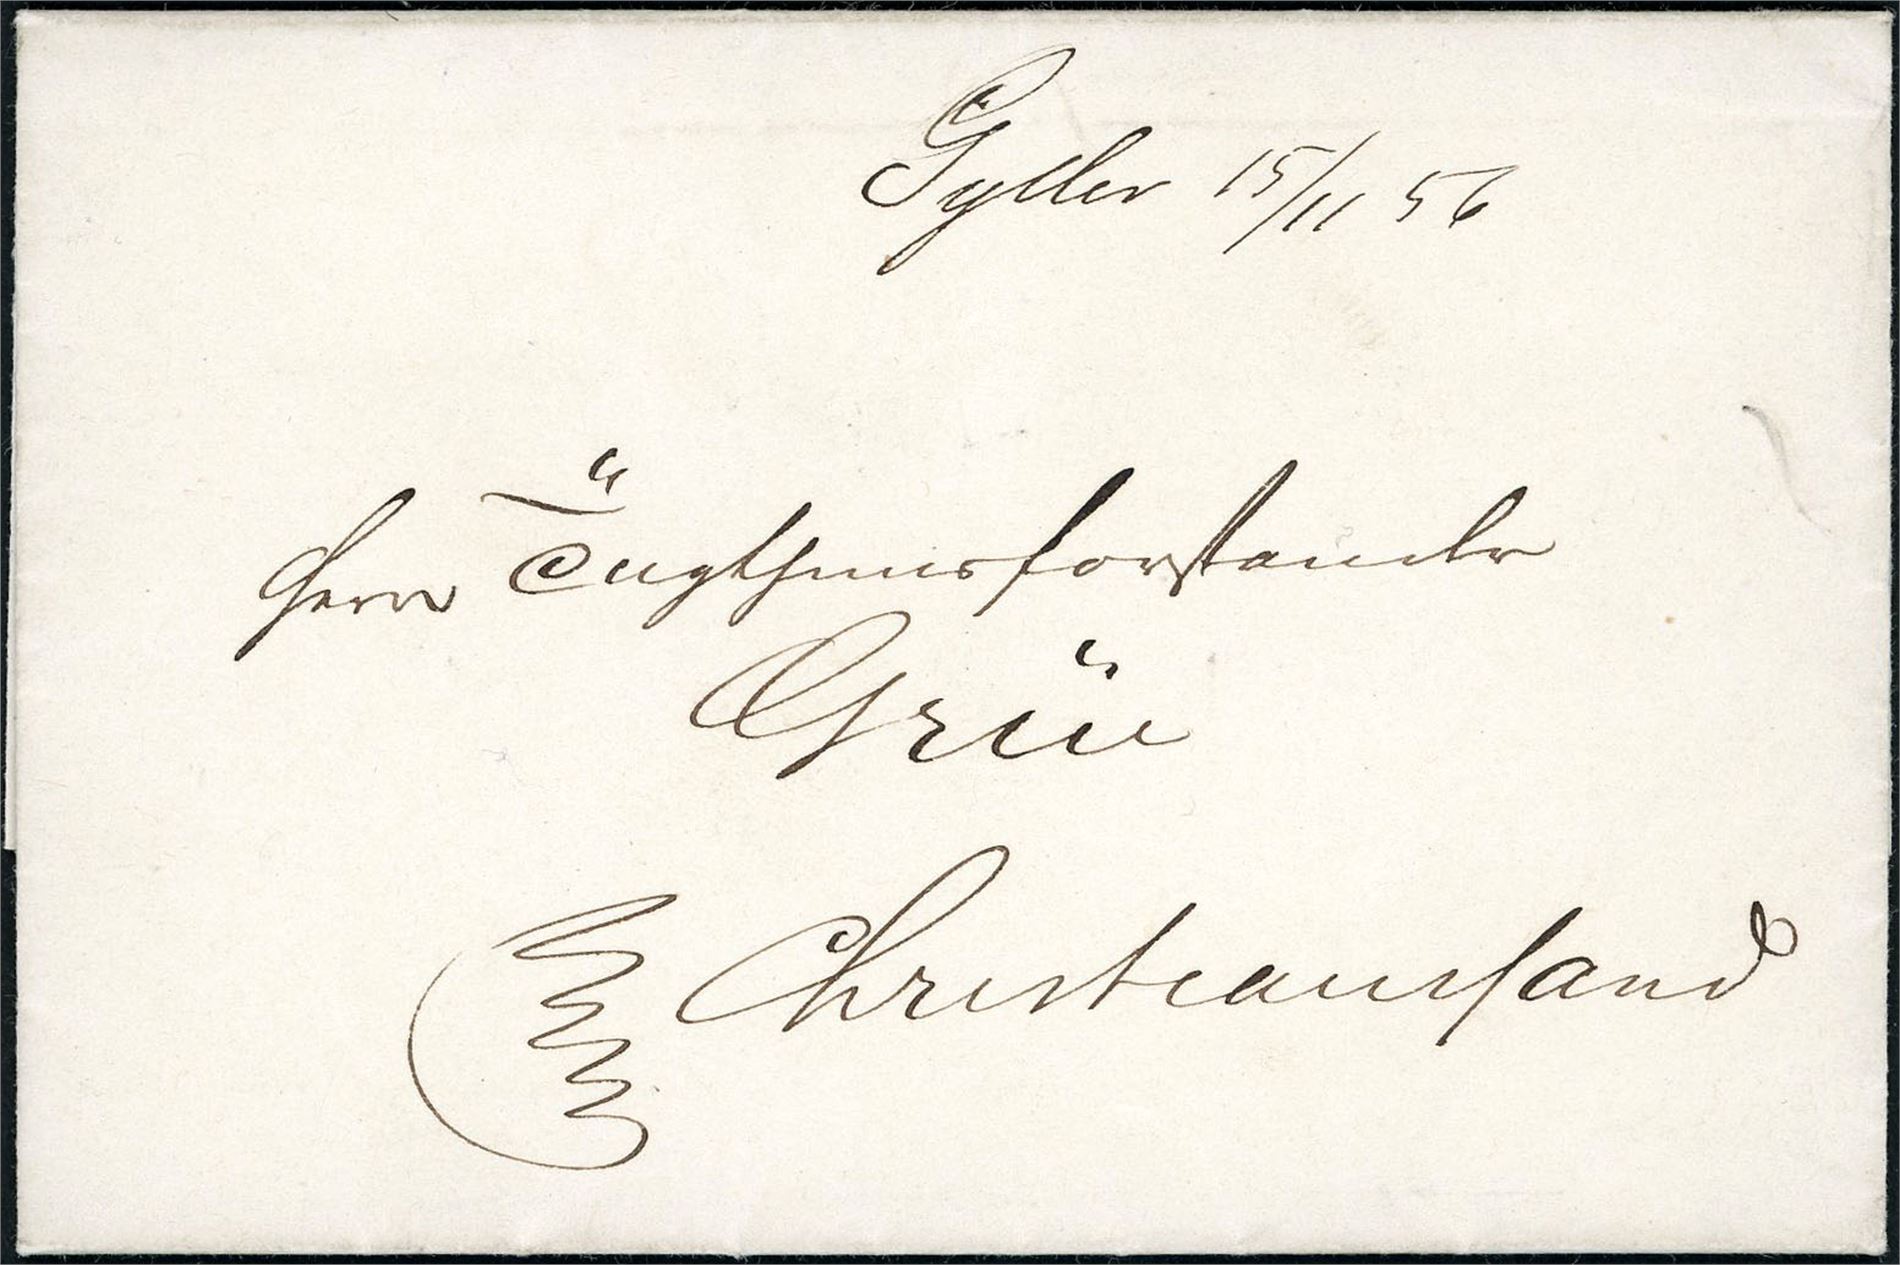 Gyller 15/11 56
Herr Tügthuusforstander
Grüe
Christianssand